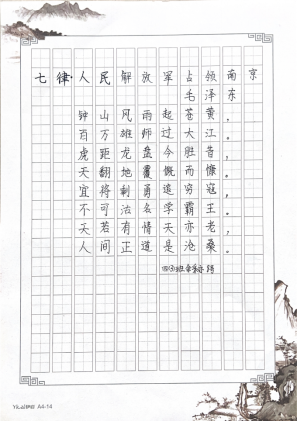 七律·人民解放军占领南京
毛泽东
钟山风雨起苍黄，
百万雄师过大江。
虎距龙盘今胜昔，
天翻地覆慨而慷。
宜将剩勇追穷寇，
不可沽名学霸王。
天若有情天亦老，
人间正道是沧桑。
四(3)班
A4-14